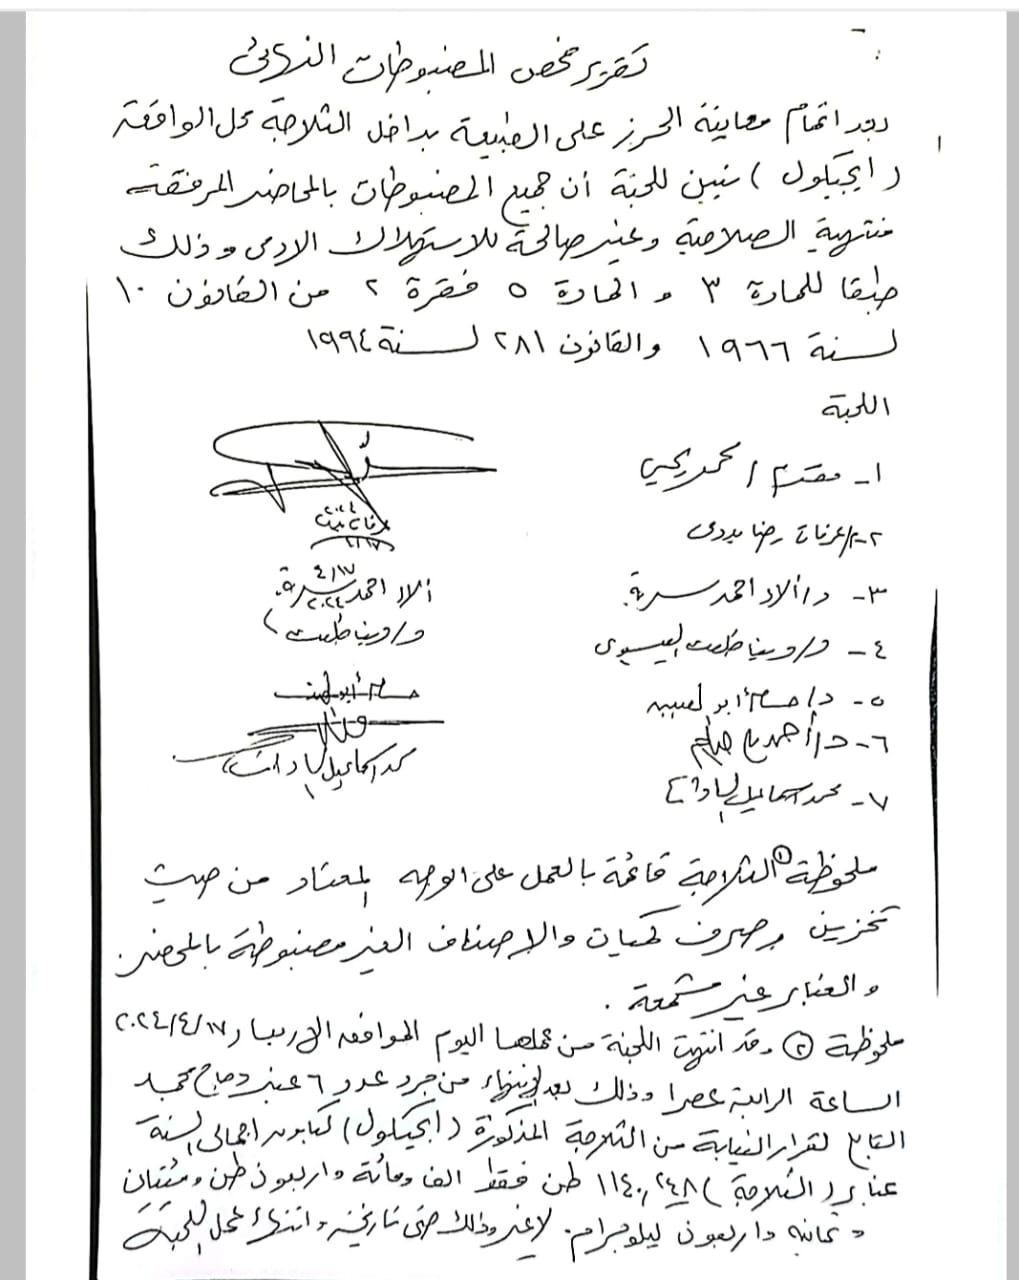 تقرير فحص المضبوطات النهائى
بعد اتمام معاينة الحرز على الطبيعة بداخل الثلاجة محل الواقعة
( ايجيكول ) تبين للجنة أن جميع المضبوطات بالمحاضر المرفقة
منتهية الصلاحية وغير صالحة للاستهلاك الادمى وذلك
طبقا للمادة ٣ و المادة ٥ فقرة ٢ من القانون ١٠
لسنة ١٩٦٦ والقانون ٢٨١ لسنة ١٩٩٤
اللجنة
١- مقدم / محمد يحيي
٢- م/ عرفات رضا بدوى
عرفات
٢٠٢٤
٤/١٧
٣- د/ ألاء احمد سرية
ألاء احمد سرية
٤/١٧
٢٠٢٤
٤- د/ دينا طلعت العيسوى
د/ دينا طلعت
٥- د/ حسام أبو لهيبه
حسام أبو لهيبه
٦- د/ أحمد
٧- محمد اسماعيل
محمد اسماعيل
ملحوظة ① الثلاجة قائمة بالعمل على الوجه المعتاد من حيث
تخزين وصرف كميات والاصناف الغير مضبوطة بالمحضر
والعنابر غير مشمعة .
ملحوظة ② وقد انتهت اللجنة من عملها اليوم الموافق الاربعاء ٢٠٢٤/٤/١٧
الساعة الرابعة عصرا وذلك بعد انتهاء من جرد عدد ٦ عنبر
التابع لقرار النيابة من الثلاجة المذكورة ( ايجيكول ) اجمالى السنة
عنابر ( الثلاجة ) ١١٤٠,٢٤٨ طن فقط الف ومائة واربعون طن ومئتان
وثمانية واربعون كيلوجرام لاغير وذلك حتى تاريخه وانتهاء عمل اللجنة